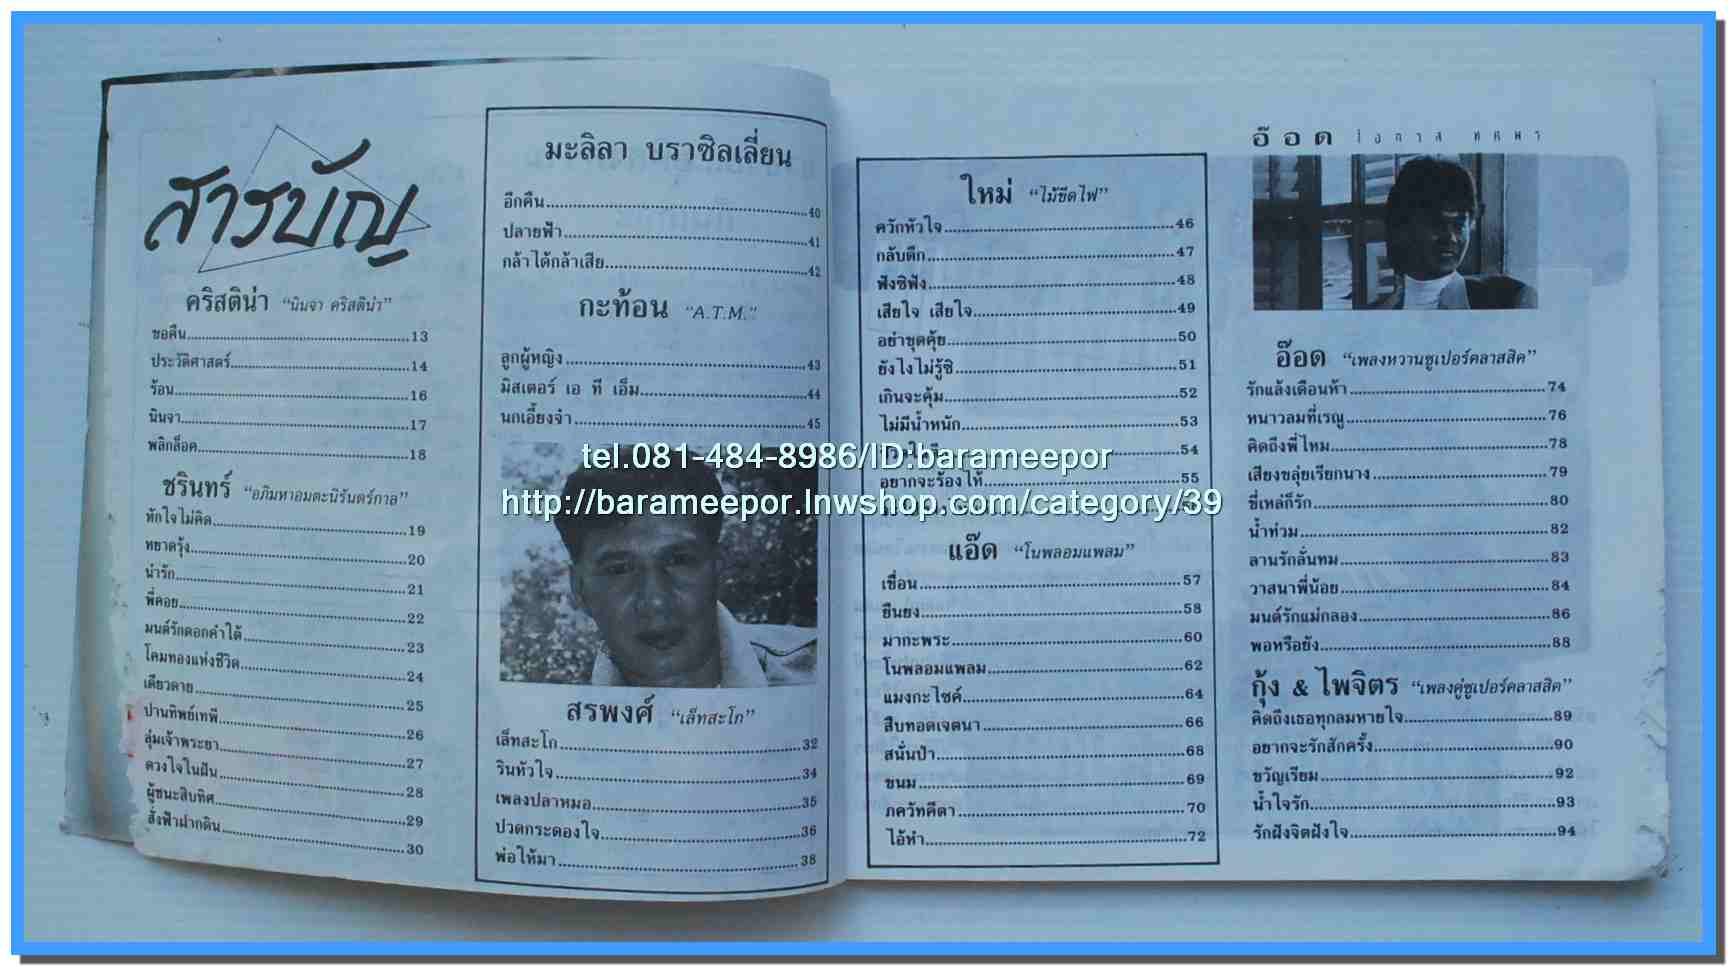 สารบัญ
คริสติน่า "นินจา คริสติน่า"
ขอคืน 13
ประวัติศาสตร์ 14
ร้อน 16
นินจา 17
พลิกล็อค 18
ชรินทร์ "อภิมหาอมตะนิรันดร์กาล"
หักใจไม่คิด 19
หยาดรุ้ง 20
นํารัก 21
พี่คอย 22
มนต์รักดอกคำใต้ 23
โคมทองแห่งชีวิต 24
เดียวดาย 25
ปานทิพย์เทพี 26
ลุ่มเจ้าพระยา 27
ดวงใจในฝัน 28
ผู้ชนะสิบทิศ 29
สั่งฟ้าฝากดิน 30
มะลิลา บราซิลเลี่ยน
อีกคืน 40
ปลายฟ้า 41
กล้าได้กล้าเสีย 42
กะท้อน "A.T.M."
ลูกผู้หญิง 43
มิสเตอร์ เอ ที เอ็ม 44
นกเอี้ยงจ๋า 45
สรพงศ์ "เล็ทสะโก"
เล็ทสะโก 32
รินหัวใจ 34
เพลงปลาหมอ 35
ปวดกระดองใจ 36
พ่อให้มา 38
ใหม่ "ไม้ขีดไฟ"
ควักหัวใจ 46
กลับดึก 47
ฟังซิฟัง 48
เสียใจ เสียใจ 49
อย่าขุดคุ้ย 50
ยังไงไม่รู้ซิ 51
เกินจะคุ้ม 52
ไม่มีน้ำหนัก 53
54
อยากจะร้องไห้ 55
แอ๊ด "โนพลอมแพลม"
เขื่อน 57
ยืนยง 58
มากะพระ 60
โนพลอมแพลม 62
แมงกะไซค์ 64
สืบทอดเจตนา 66
สนั่นป่า 68
ขนม 69
ภควัทคีตา 70
ไอ้หำ 72
อ๊อด โอภาส ทศพร
อ๊อด "เพลงหวานซูเปอร์คลาสสิค"
รักแล้งเดือนห้า 74
หนาวลมที่เรณู 76
คิดถึงพี่ไหม 78
เสียงขลุ่ยเรียกนาง 79
ขี้เหล่ก็รัก 80
น้ำท่วม 82
ลานรักลั่นทม 83
วาสนาพี่น้อย 84
มนต์รักแม่กลอง 86
พอหรือยัง 88
กุ้ง & ไพจิตร "เพลงคู่ซูเปอร์คลาสสิค"
คิดถึงเธอทุกลมหายใจ 89
อยากจะรักสักครั้ง 90
ขวัญเรียม 92
น้ำใจรัก 93
รักฝังจิตฝังใจ 94
tel.081-484-8986/ID:barameepor
http://barameepor.lnwshop.com/category/39